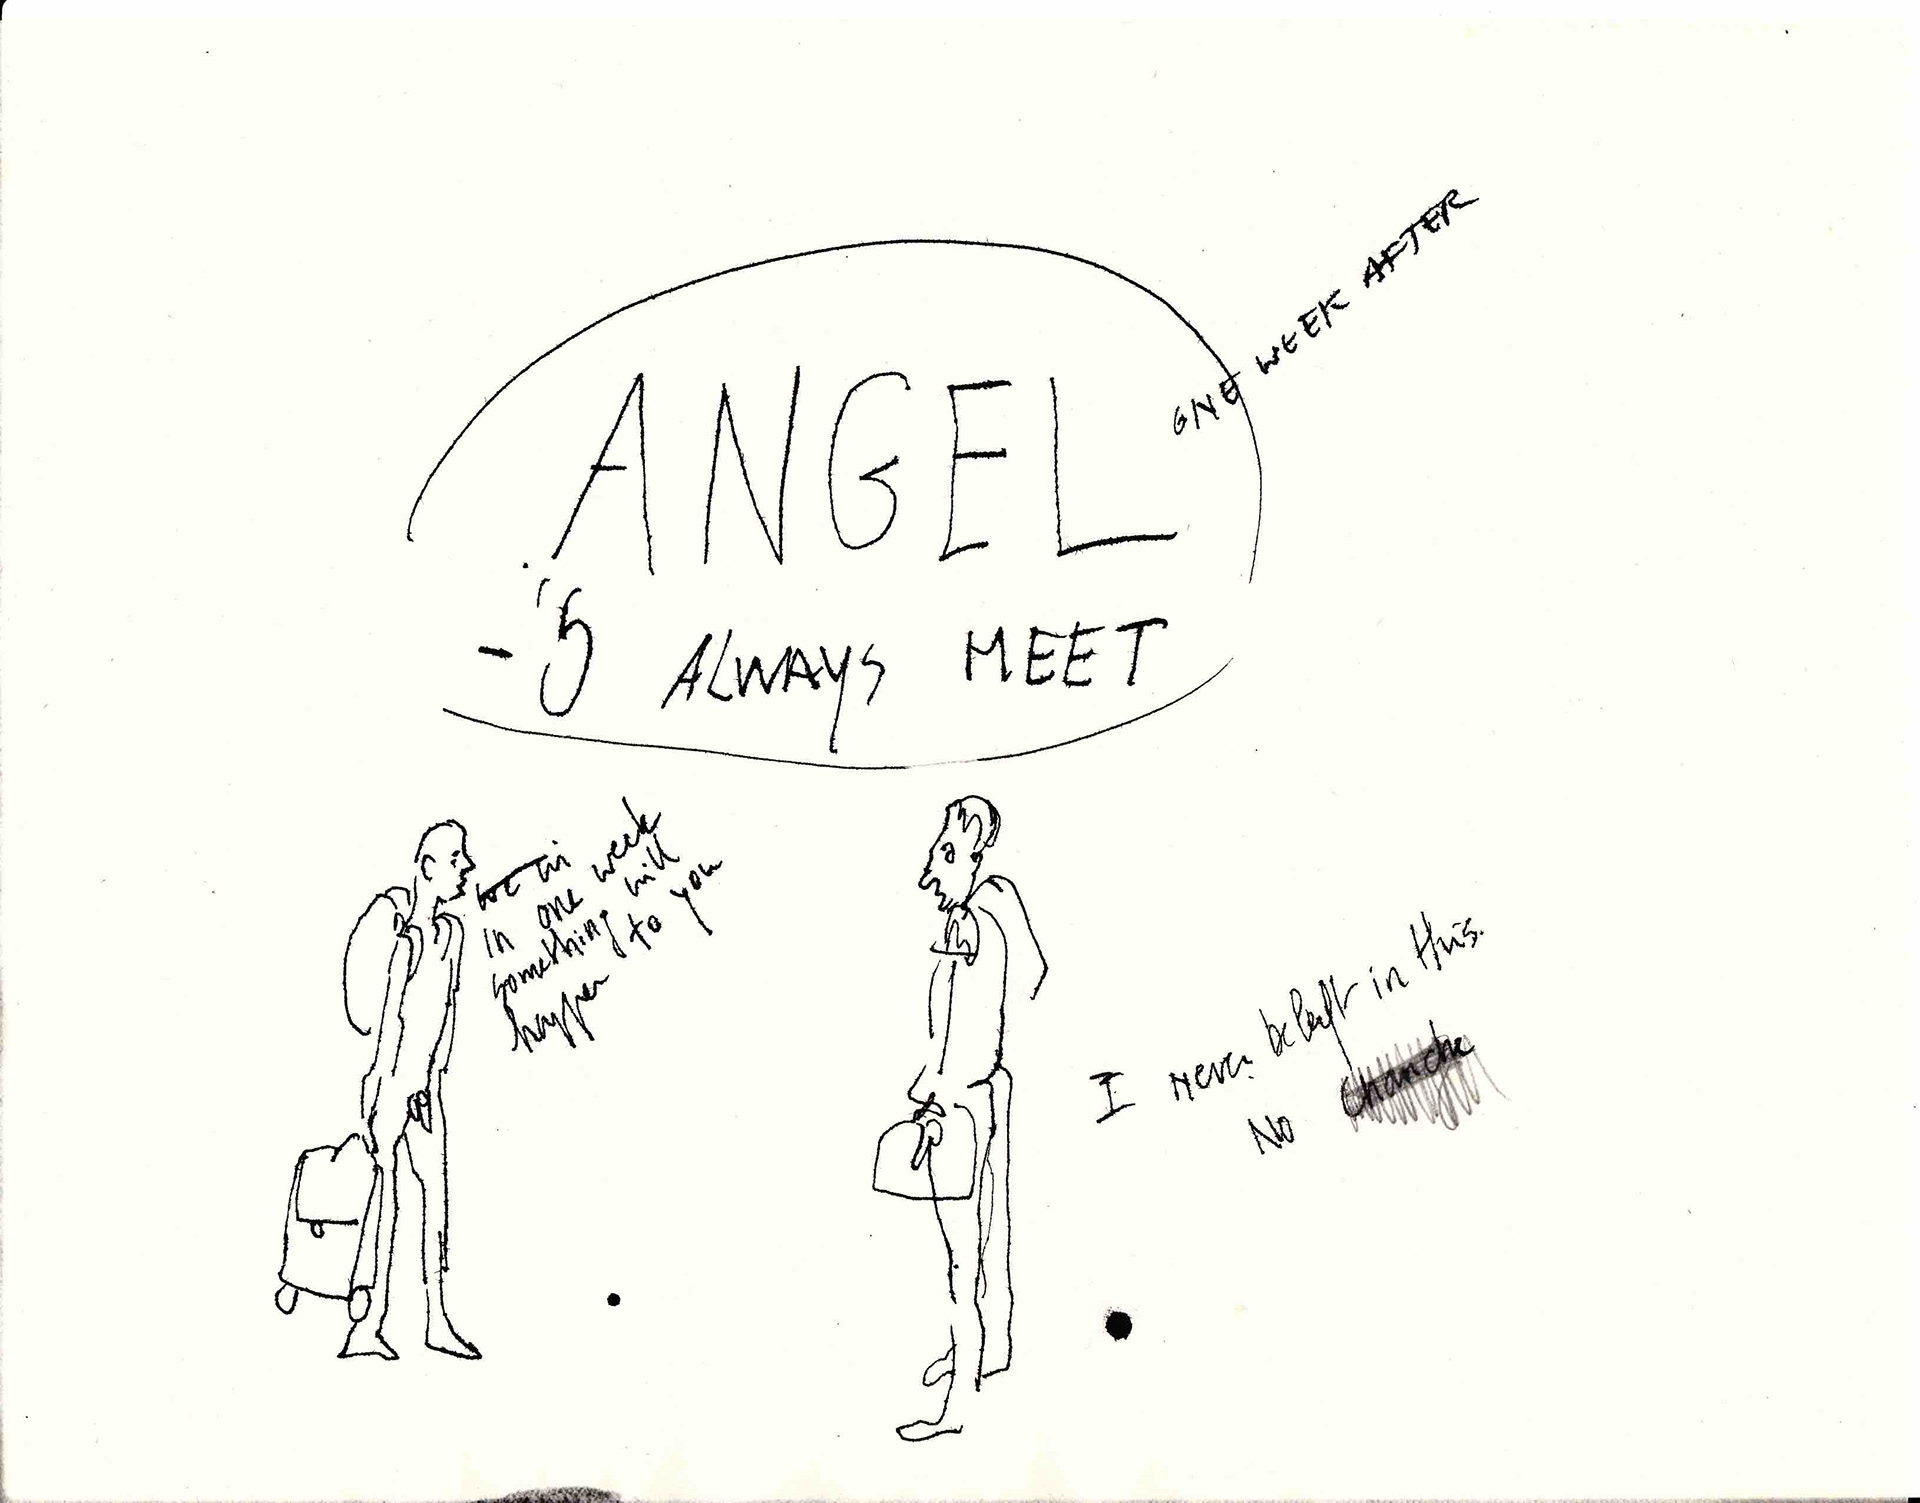 ONE WEEK AFTER
ANGEL
-'S ALWAYS MEET
we in
in one week
something will
happen to you
I never beleft in this.
No chanche